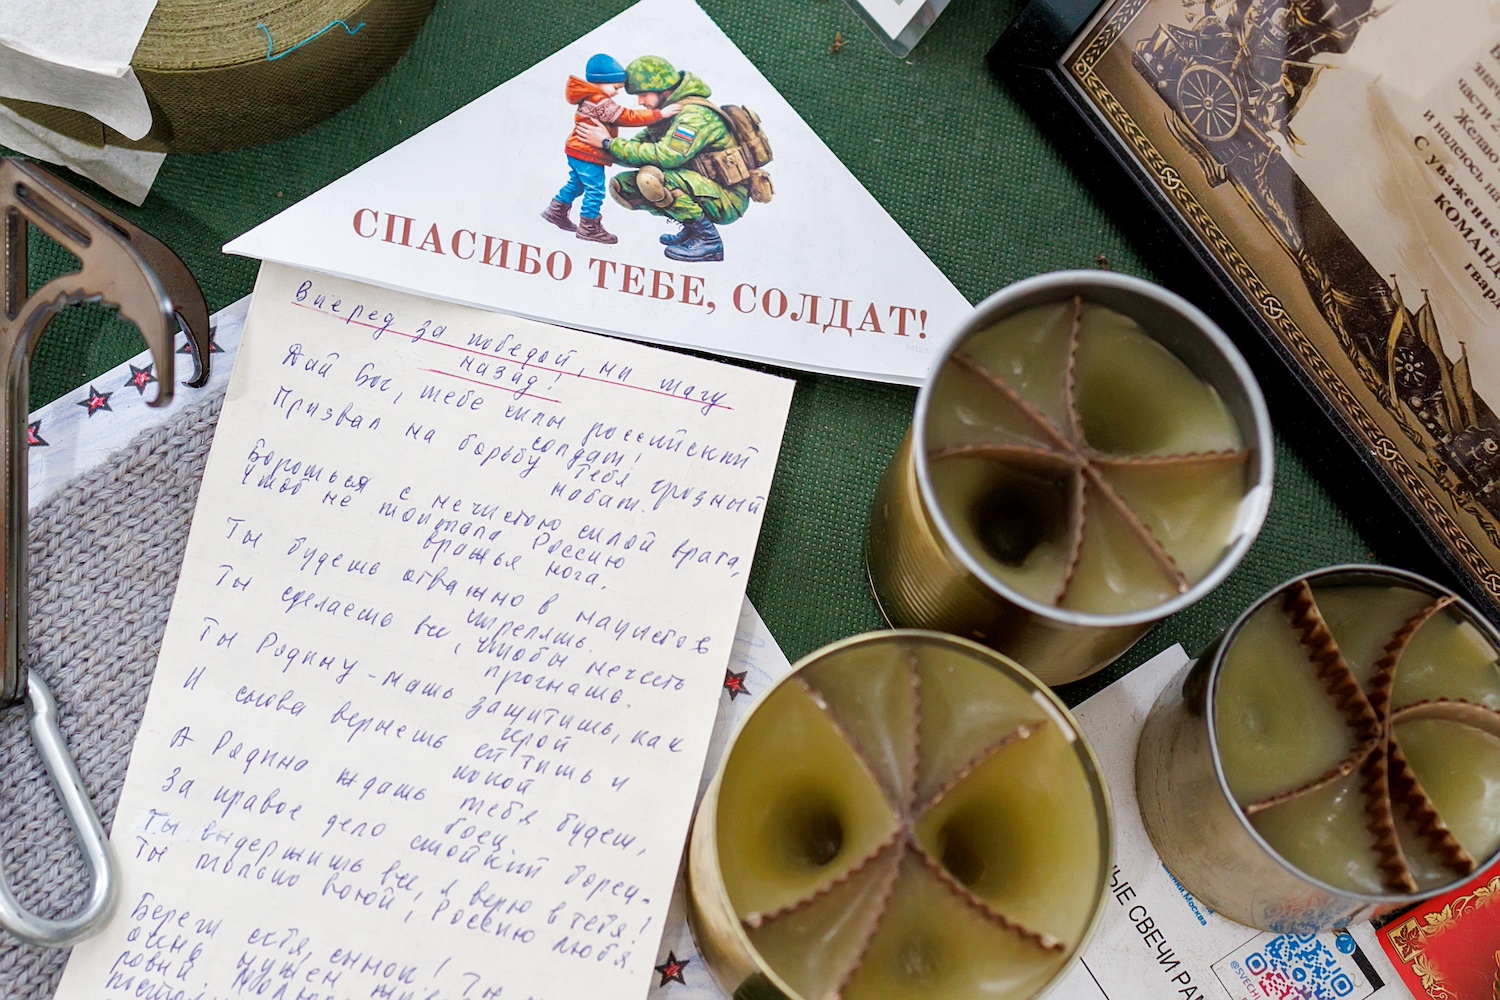 СПАСИБО ТЕБЕ, СОЛДАТ!
Вперед за победой, ни шагу
назад!
Дай Бог, тебе силы российский
солдат!
Призвал на борьбу тебя грозный
набат.
Бороться с нечистою силой врага,
Чтоб не топтала Россию
вражья нога.
Ты будешь отважно в
стрелять.
Ты сделаешь все, чтобы нечесть
прогнать.
Ты Родину-мать защитишь, как
герой
И снова вернешь ей тишь и
покой
А Родина ждать тебя будет,
боец.
За правое дело стойкий борец.
Ты выдержишь все, я верю в тебя!
Ты только воюй, Россию любя.
Береги себя, сынок! Ты
очень нужен
КОМАНД
С уважение
и надеюсь на
Желаю
части
знач
гвар
ЫЕ СВЕЧИ
Москва
@SVECH